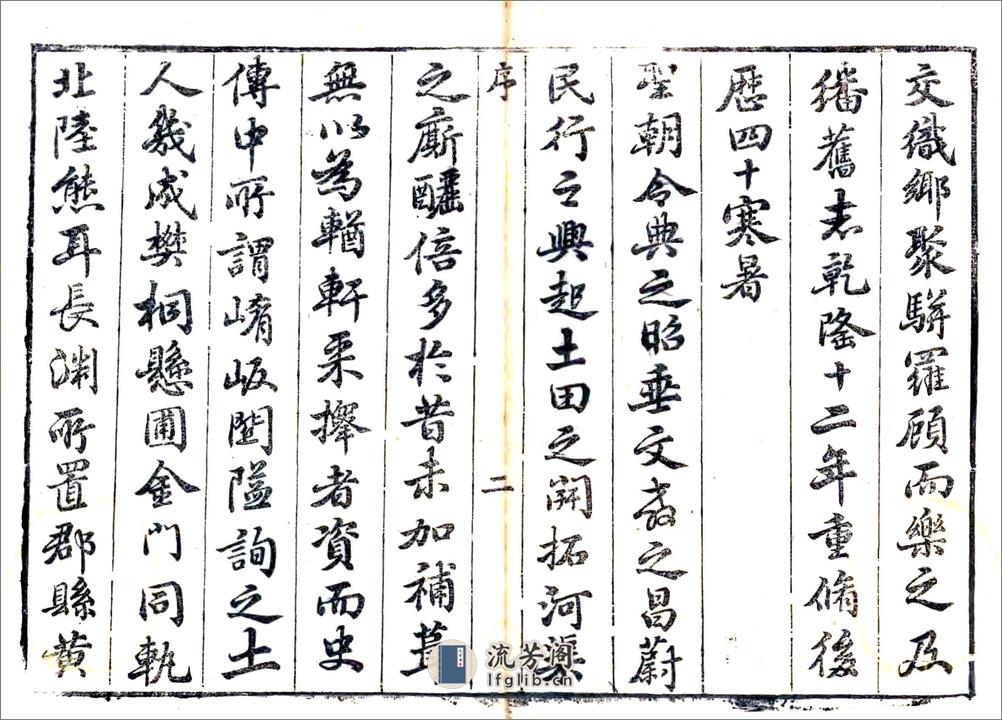 交織鄉聚駢羅顧而樂之及
繙舊志乾隆十二年重脩後
歷四十寒暑
聖朝令典之昭垂文教之昌蔚
民行之興起土田之開拓河渠
序
二
之廝釃倍多於昔未加補葺
無以為輶軒采擇者資而史
傳中所謂崤岅閸隘詢之土
人幾成樊桐懸圃金門同軌
北陸熊耳長淵所置郡縣黃
流芳阁
lfglib.cn